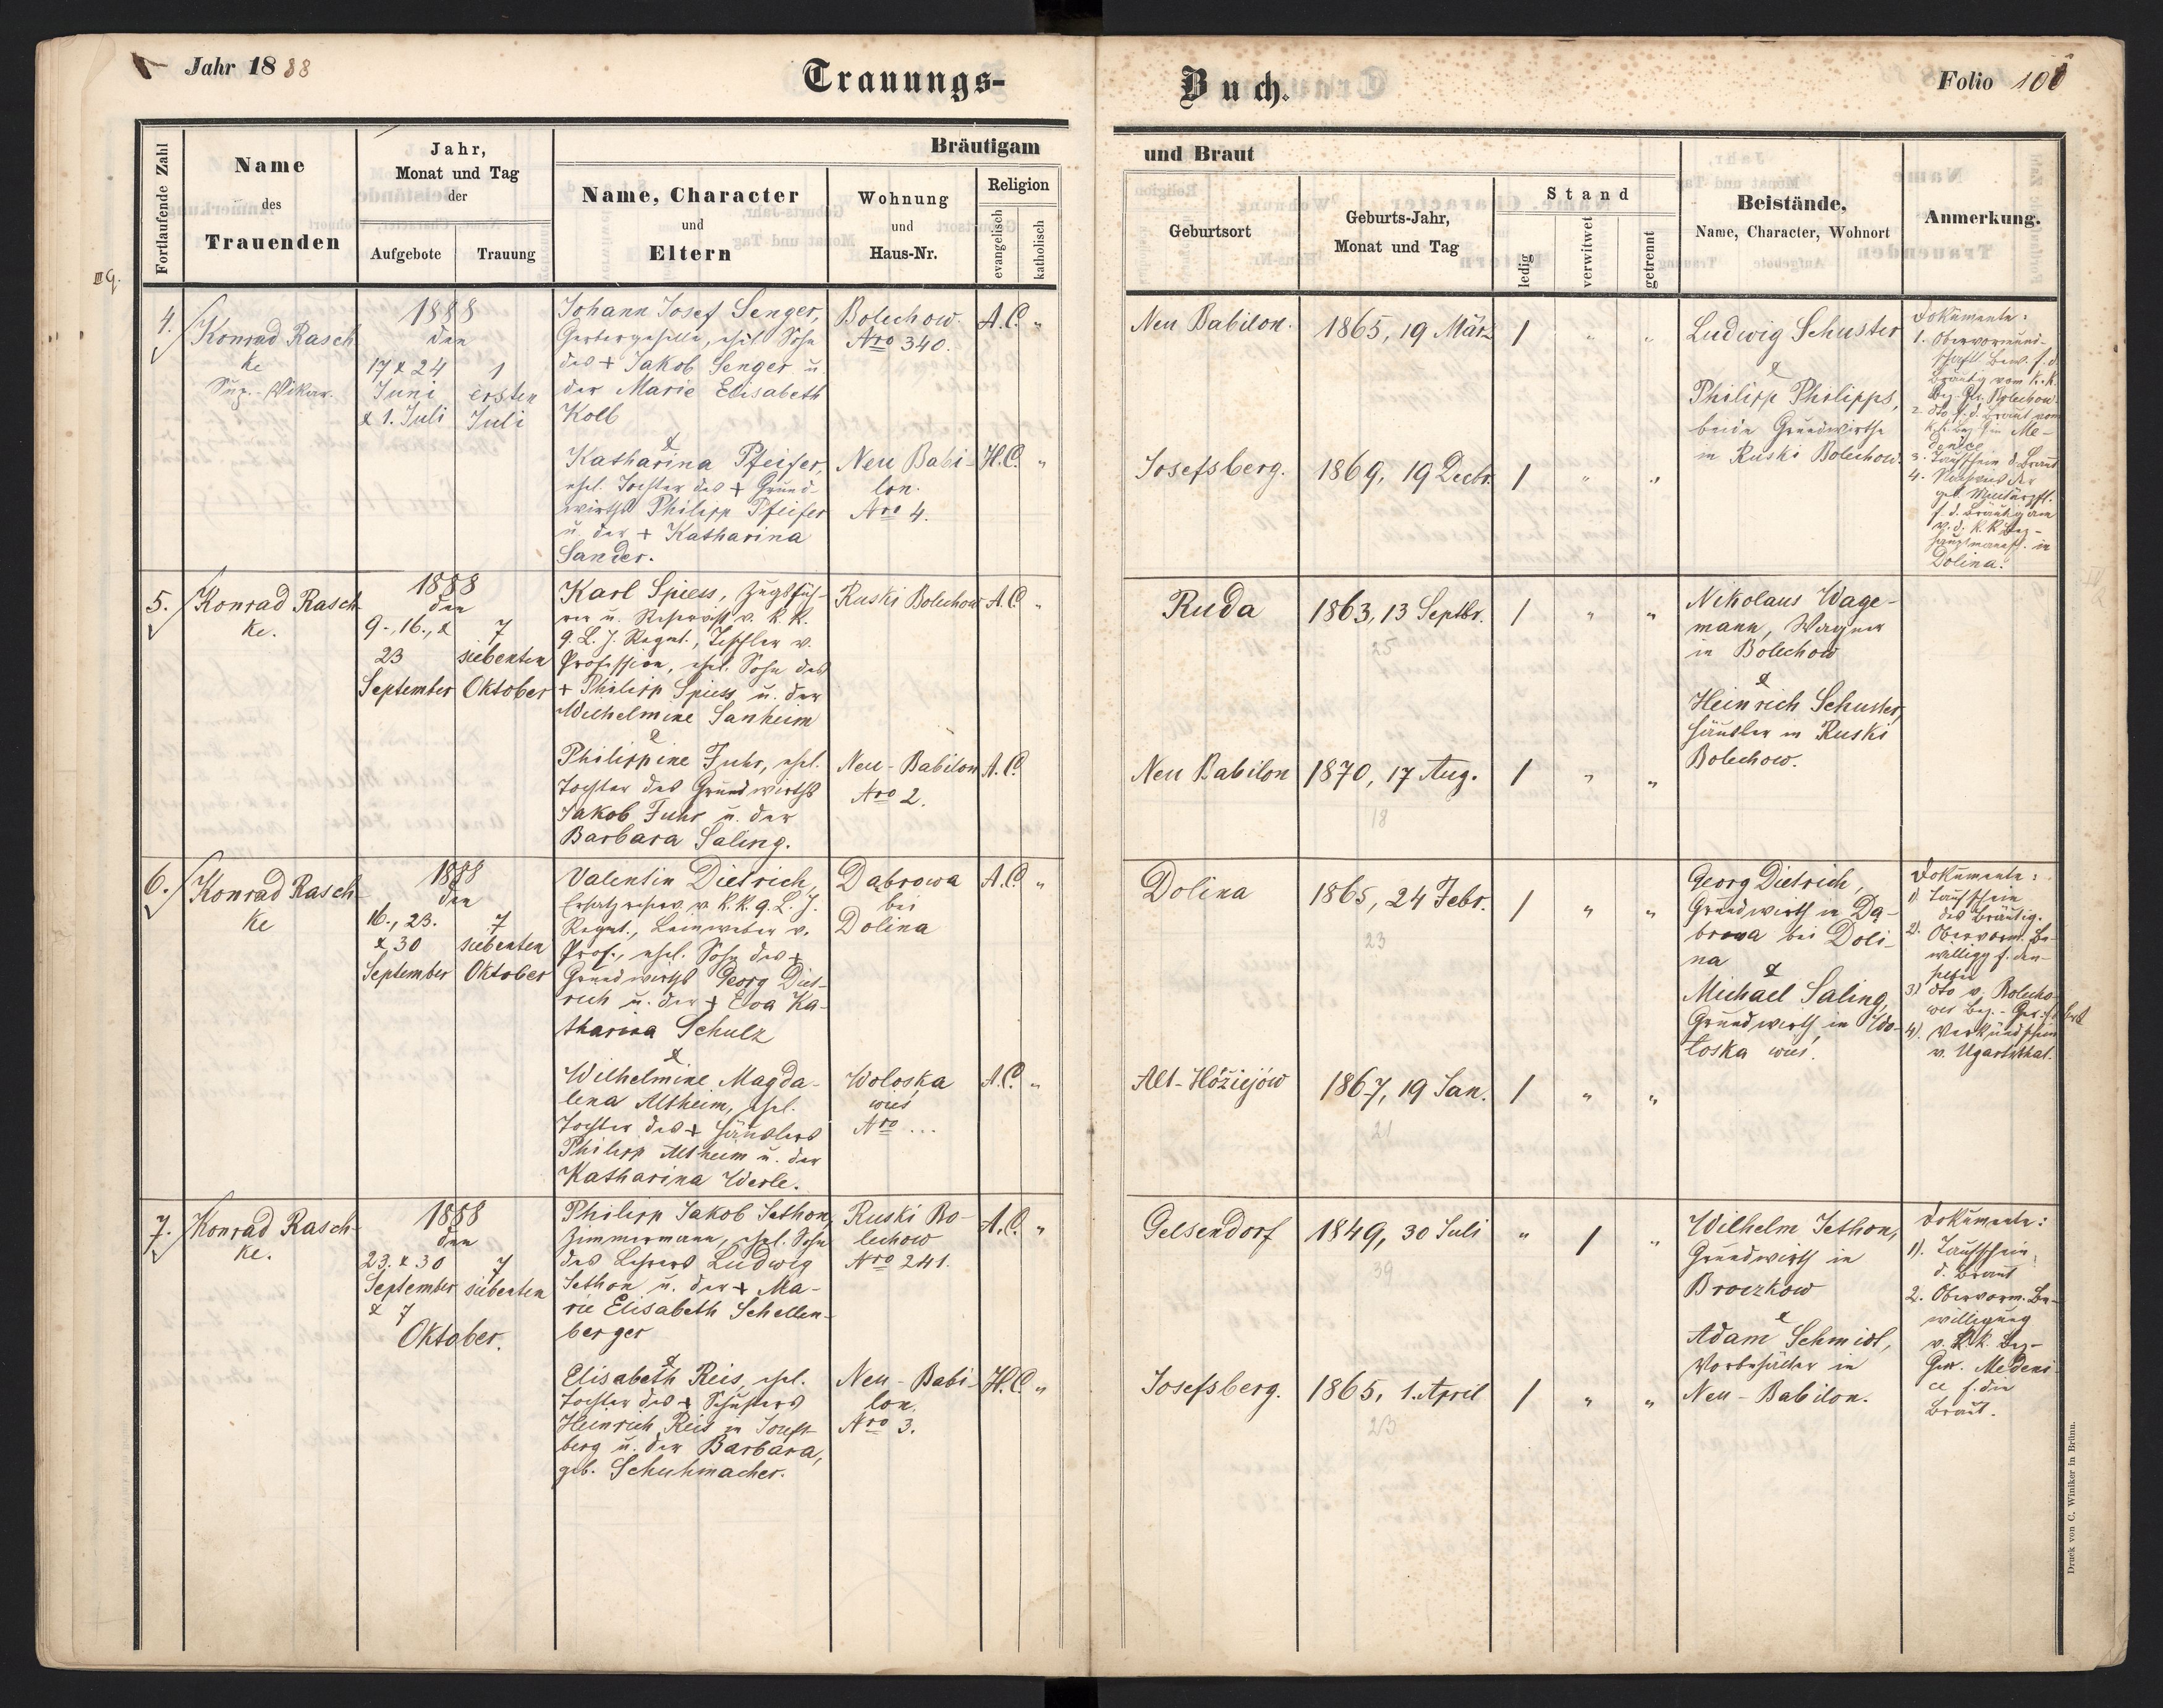 Jahr 1888
Trauungs-
Buch.
Folio 100
Fortlaufende Zahl
Name
des
Trauenden
Jahr,
Monat und Tag
der
Aufgebote
Trauung
Bräutigam
Name, Character
und
Eltern
Wohnung
und
Haus-Nr.
Religion
evangelisch
katholisch
und Braut
Geburtsort
Geburts-Jahr,
Monat und Tag
Stand
ledig
verwitwet
getrennt
Beistände,
Name, Character, Wohnort
Anmerkung.
4.
Konrad Rasch
ke
Sup.-Vikar.
1888
den
17 & 24
Juni
& 1. Juli
1
ersten
Juli
Johann Josef Senger,
Gerbergeselle, ehel. Sohn
des + Jakob Senger u.
der Marie Elisabeth
Kolb
&
Katharina Pfeifer,
ehel. Tochter des + Grund-
wirths Philipp Pfeifer
u. der + Katharina
Sander.
Bolechow.
Nro 340.
Neu Babi-
lon.
Nro 4.
A.C. "
H.C. "
Neu Babilon.
Josefsberg.
1865, 19 März
1869, 19 Decbr.
1 " "
1 " "
Ludwig Schuster
&
Philipp Philipps,
beide Grundwirthe
in Ruski Bolechow.
Dokumente:
1. Obervormund-
schaftl. Bew. f. d.
Bräutig vom k. k.
Bez. Gr. Bolechow
2. dto f. d. Braut vom
k. k. Bez. G in Me-
denice
3. Taufschein d. Braut
4.
f. d. Bräutigam
v. d. k. k Bez-
hauptmansch. in
Dolina.
5.
Konrad Rasch
ke.
1888
den
9., 16., &
23
September
7
siebenten
Oktober
Karl Spiess, Zugsfüh-
rer u. Reservist v. k. k.
9. L. J. Regmt., Tischler v.
Profession, ehel. Sohn des
+ Philipp Spiess u. der
Wilhelmine Sanheim
&
Philippine Fuhr, ehel.
Tochter des Grundwirths
Jakob Fuhr u. der
Barbara Saling.
Ruski Bolechow
Neu-Babilon
Nro 2.
A.C. "
A.C.
Ruda
Neu Babilon
1863, 13 Septbr.
25
1870, 17 Aug.
18
1 " "
1 " "
Nikolaus Wage-
mann, Wagner
in Bolechow
&
Heinrich Schuster,
Häusler in Ruski
Bolechow.
6.
Konrad Rasch
ke
1888
den
16., 23.
& 30
September
7
siebenten
Oktober
Valentin Dietrich,
Ersatzreserv. v k. k. 9. L. J.
Regmt., Leinweber v.
Prof., ehel. Sohn des +
Grundwirths Georg Diet-
rich u. der + Eva Ka-
tharina Schulz
&
Wilhelmine Magda-
lena Altheim, ehel.
Tochter des + Häuslers
Philipp Altheim u. der
Katharina Werle.
Dąbrowa
bei
Dolina
Woloska
wies
Nro ...
A.C. "
A.C. "
Dolina
Alt-Hőžiejów
1865, 24 Febr.
23
1867, 19 Jan.
21
1 " "
1 " "
Georg Dietrich,
Grundwirth in Dą-
browa bei Doli-
na
&
Michael Saling,
Grundwirth in Wo-
loska wies.
Dokumente:
1) Taufschein
des Bräutig.
2). Obervorm. Be-
willigg f. den-
selben
3) dto v. Bolecho-
wer Bez.-Ger.
4). Verkündschein
v. Ugartsthal.
7.
Konrad Rasch-
ke.
1888
den
23. & 30
September
& 7
Oktober.
7
siebenten
Philipp Jakob Jethon,
Zimmermann, ehel. Sohn
des Lehrers Ludwig
Jethon u. der + Ma-
rie Elisabeth Schellen-
berger
&
Elisabeth Reis, ehel.
Tochter des + Schusters
Heinrich Reis in Josefs-
berg u. der Barbara,
geb. Schuhmacher.
Ruski Bo-
lechow
Nro 241.
Neu-Babi-
lon.
Nro 3.
A.C. "
H.C. "
Gelsendorf
Josefsberg.
1849, 30 Juli
39
1865, 1. April
23
" 1 "
1 " "
Wilhelm Jethon,
Grundwirth in
Broczkow
&
Adam Schmidt,
Vorbehälter in
Neu-Babilon.
Dokumente:
1). Taufschein
d. Braut
2. Obervorm. Be-
willigung
v. k. k. Bez-
Ger. Medeni-
ce f. die
Braut.
Druck von C. Winiker in Brünn.